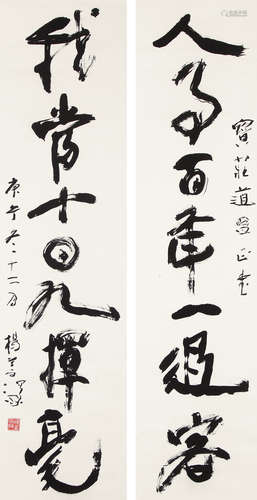 人為百年一過客
寶莊道兄正
我常十日九揮毫
庚午冬十二月 楊善深